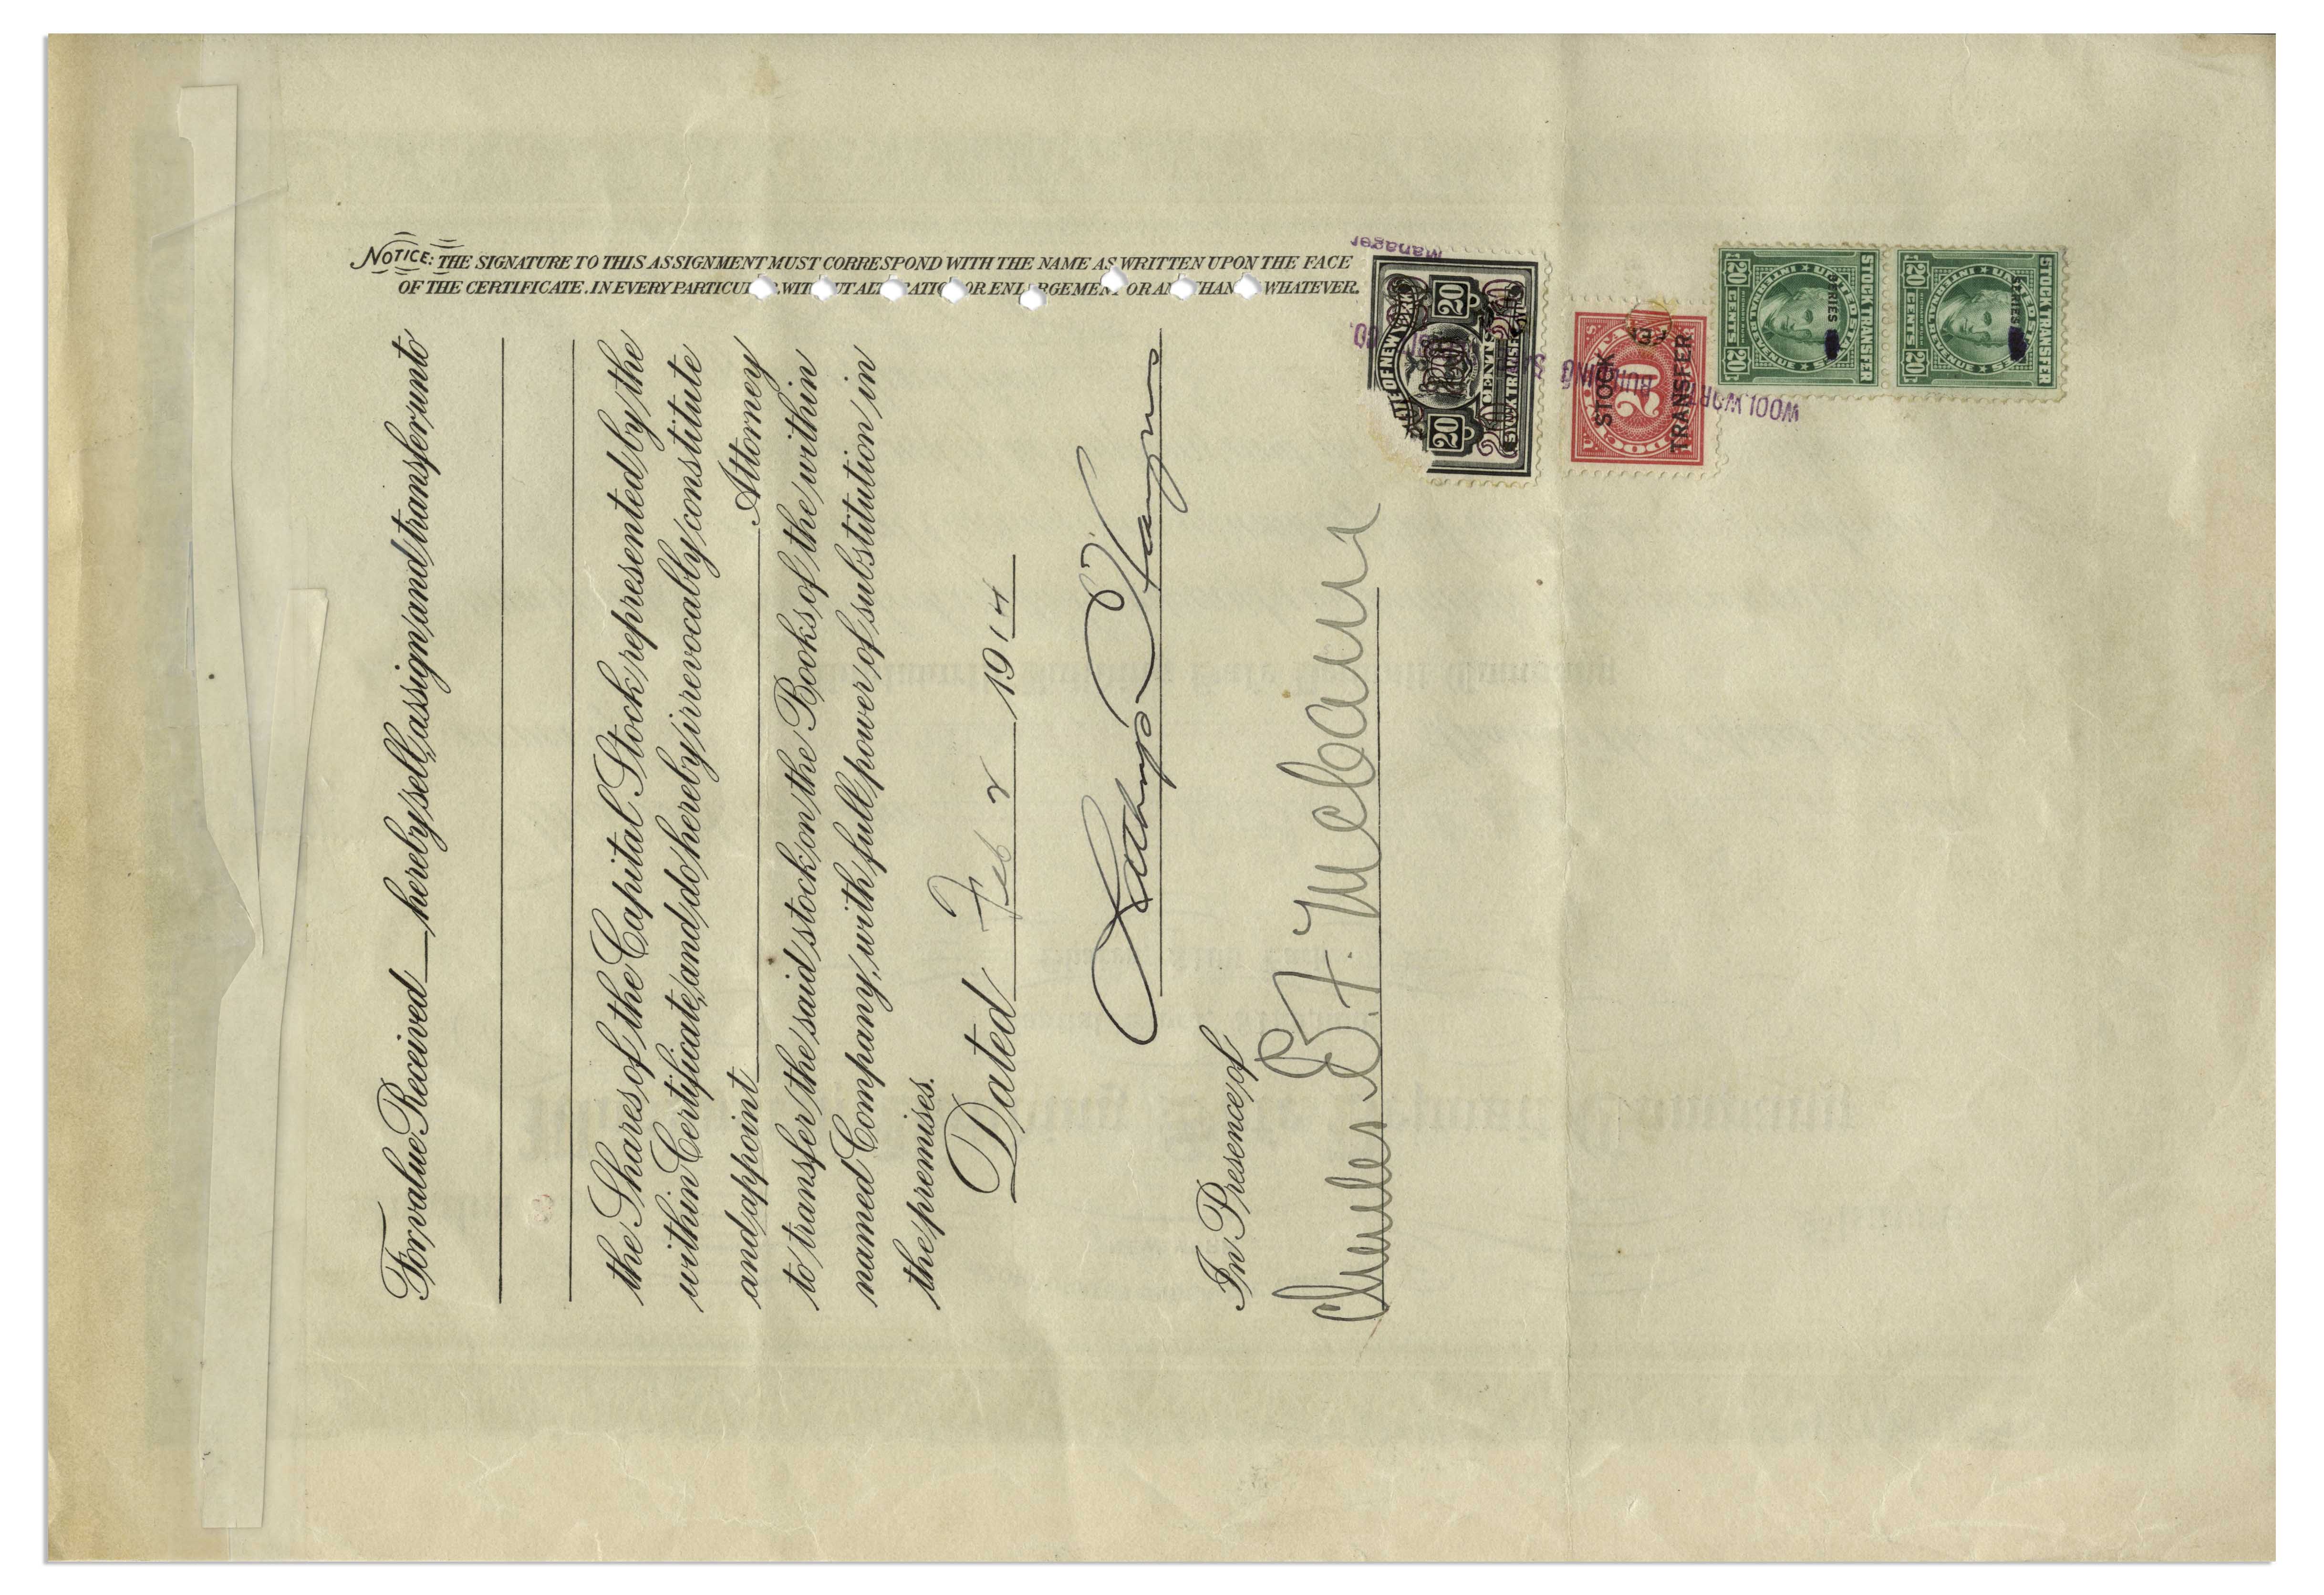 NOTICE: THE SIGNATURE TO THIS ASSIGNMENT MUST CORRESPOND WITH THE NAME AS WRITTEN UPON THE FACE
OF THE CERTIFICATE. IN EVERY PARTICULAR WITHOUT ALTERATION OR ENLARGEMENT OR ANY CHANGE WHATEVER.
For value Received hereby sell, assign and transfer unto
the Shares of the Capital Stock represented by the
within Certificate, and do hereby irrevocably constitute
and appoint Attorney
to transfer the said stock on the Books of the within
named Company, with full power of substitution in
the premises.
Dated Feb 2 1914
In Presence of
Charles E. F. McCann
STATE OF NEW YORK
20 20
CENTS
STOCK TRANSFER
Manager
CO.
STOCK
TRANSFER
20
WOOLWORTH BUILDING
STOCK TRANSFER
SERIES
20 CENTS 20
STOCK TRANSFER
SERIES
20 CENTS 20